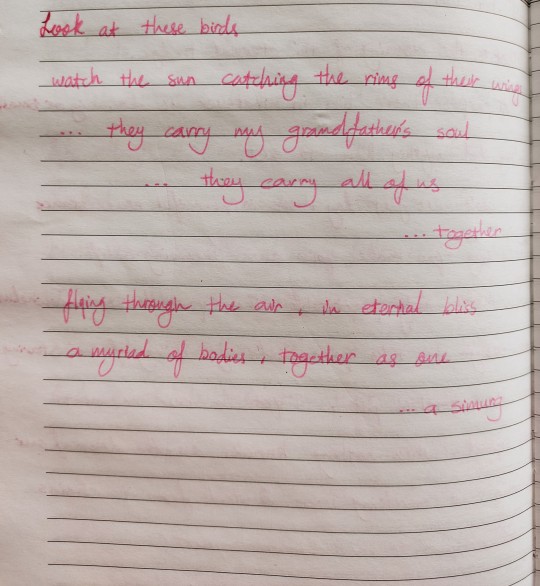 Look at these birds
watch the sun catching the rims of their wings
... they carry my grandfather's soul
... they carry all of us
... together
flying through the air, in eternal bliss
a myriad of bodies, together as one
... a simurg